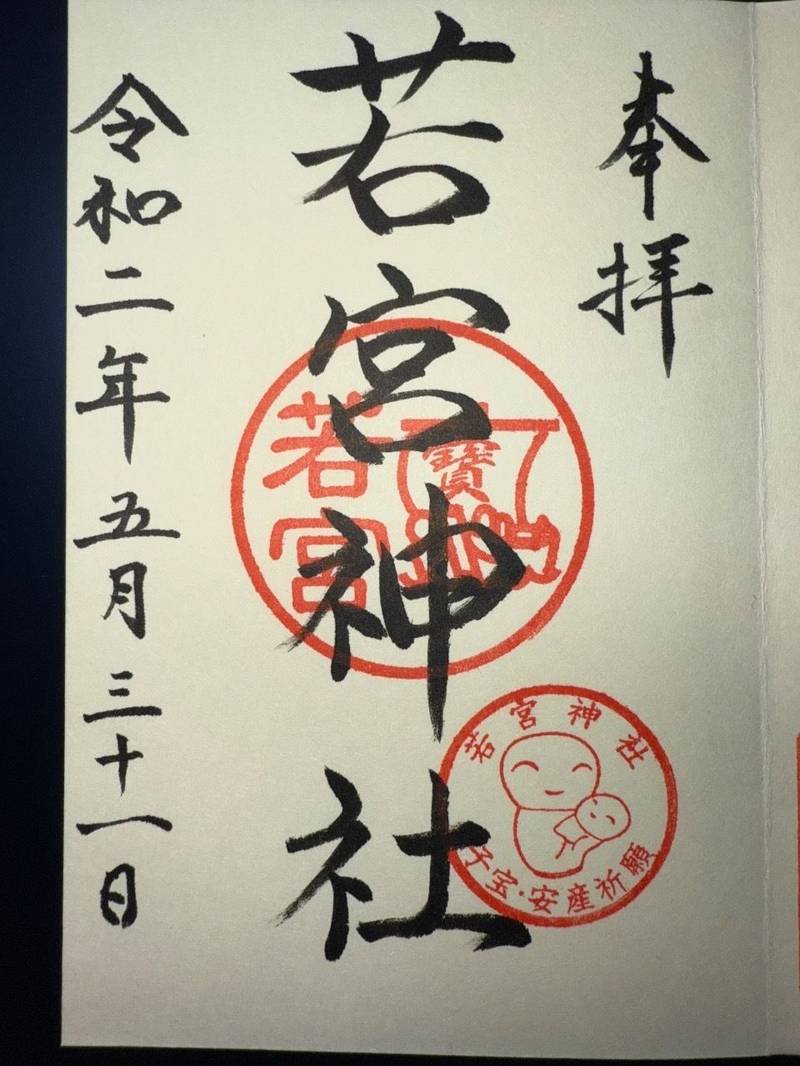 奉拝
若宮神社
令和二年五月三十一日
若宮
寶
若宮神社
子宝・安産祈願